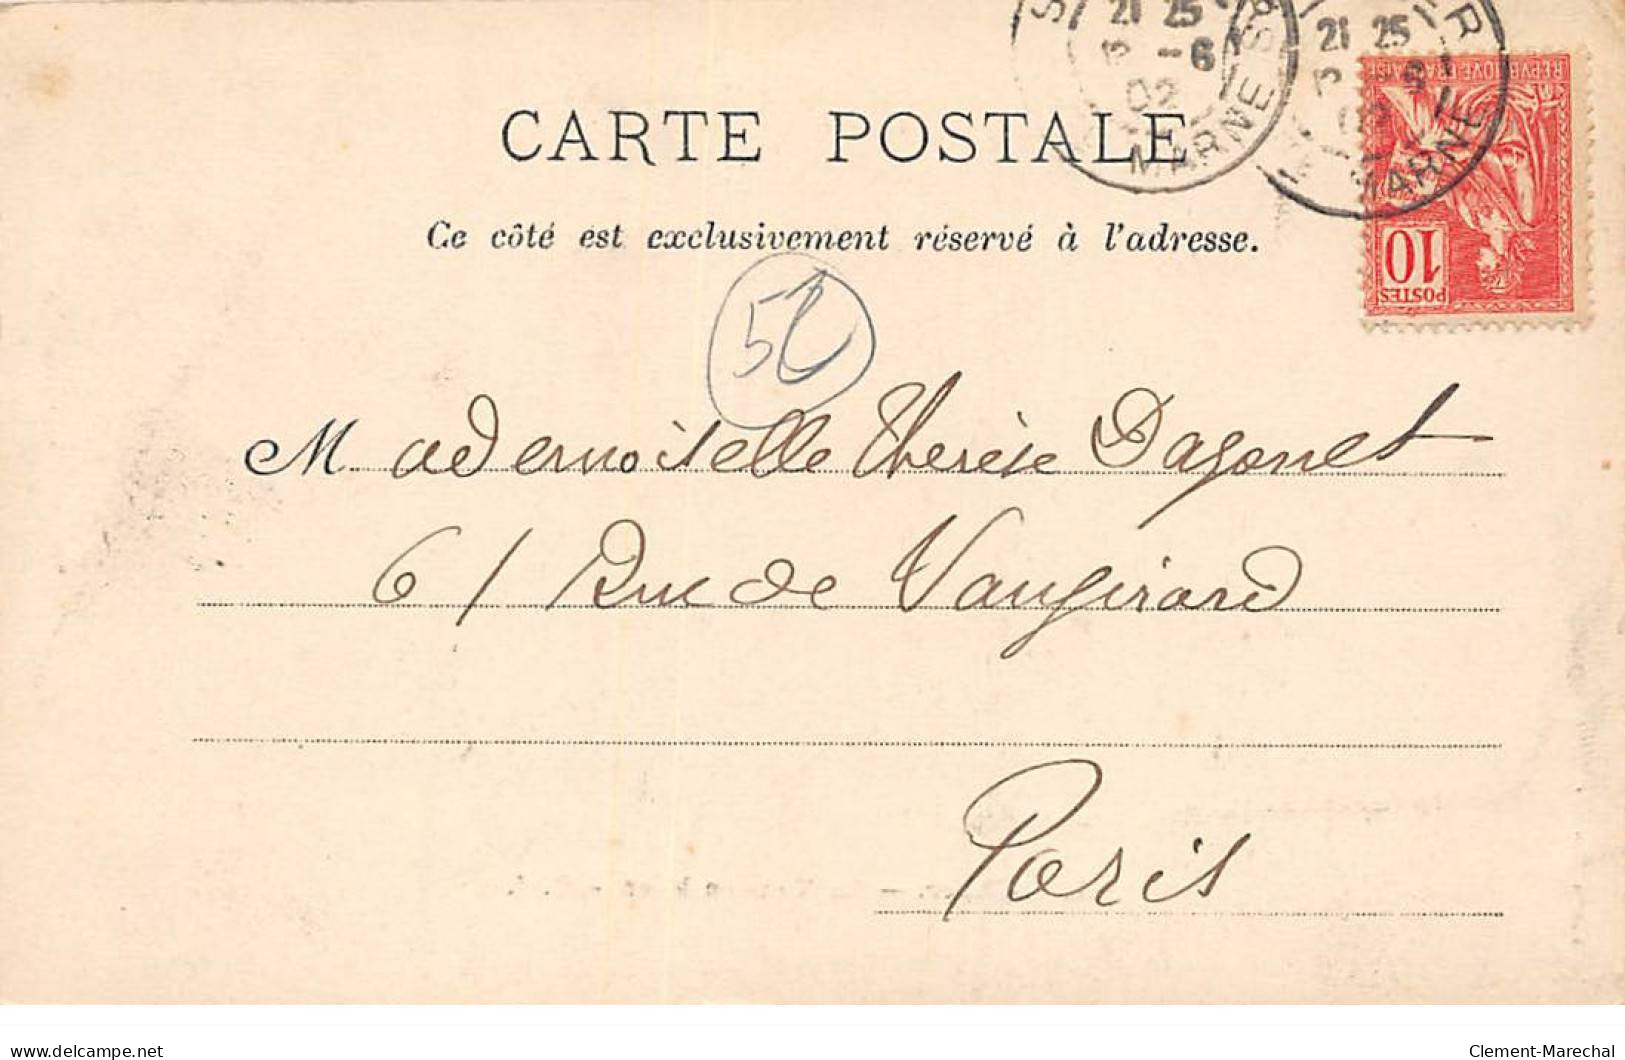 21 25
3 -6
02
MARNE
21 25
3
MARNE
REPVBLIQVE FRANÇAISE
10
POSTES
CARTE POSTALE
Ce côté est exclusivement réservé à l'adresse.
Mademoiselle Therèse Dagonet
61 Rue de Vaugirard
Paris
Clement-Marechal
www.delcampe.net